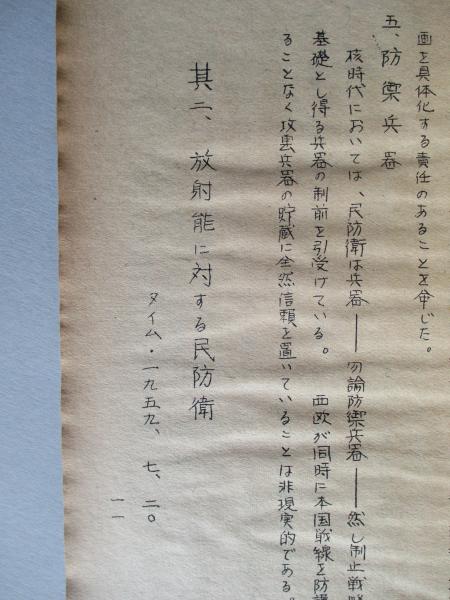 画を具体化する責任のあることを命じた。
五、防禦兵器
核時代においては、民防衛は兵器——勿論防禦兵器——然し制止戦略
基礎とし得る兵器の制前を引受けている。 西欧が同時に本国戦線を防護
ることなく攻害兵器の貯蔵に全然信頼を置いていることは非現実的である。
其二、放射能に対する民防衛
タイム・一九五九、七、二〇
一一